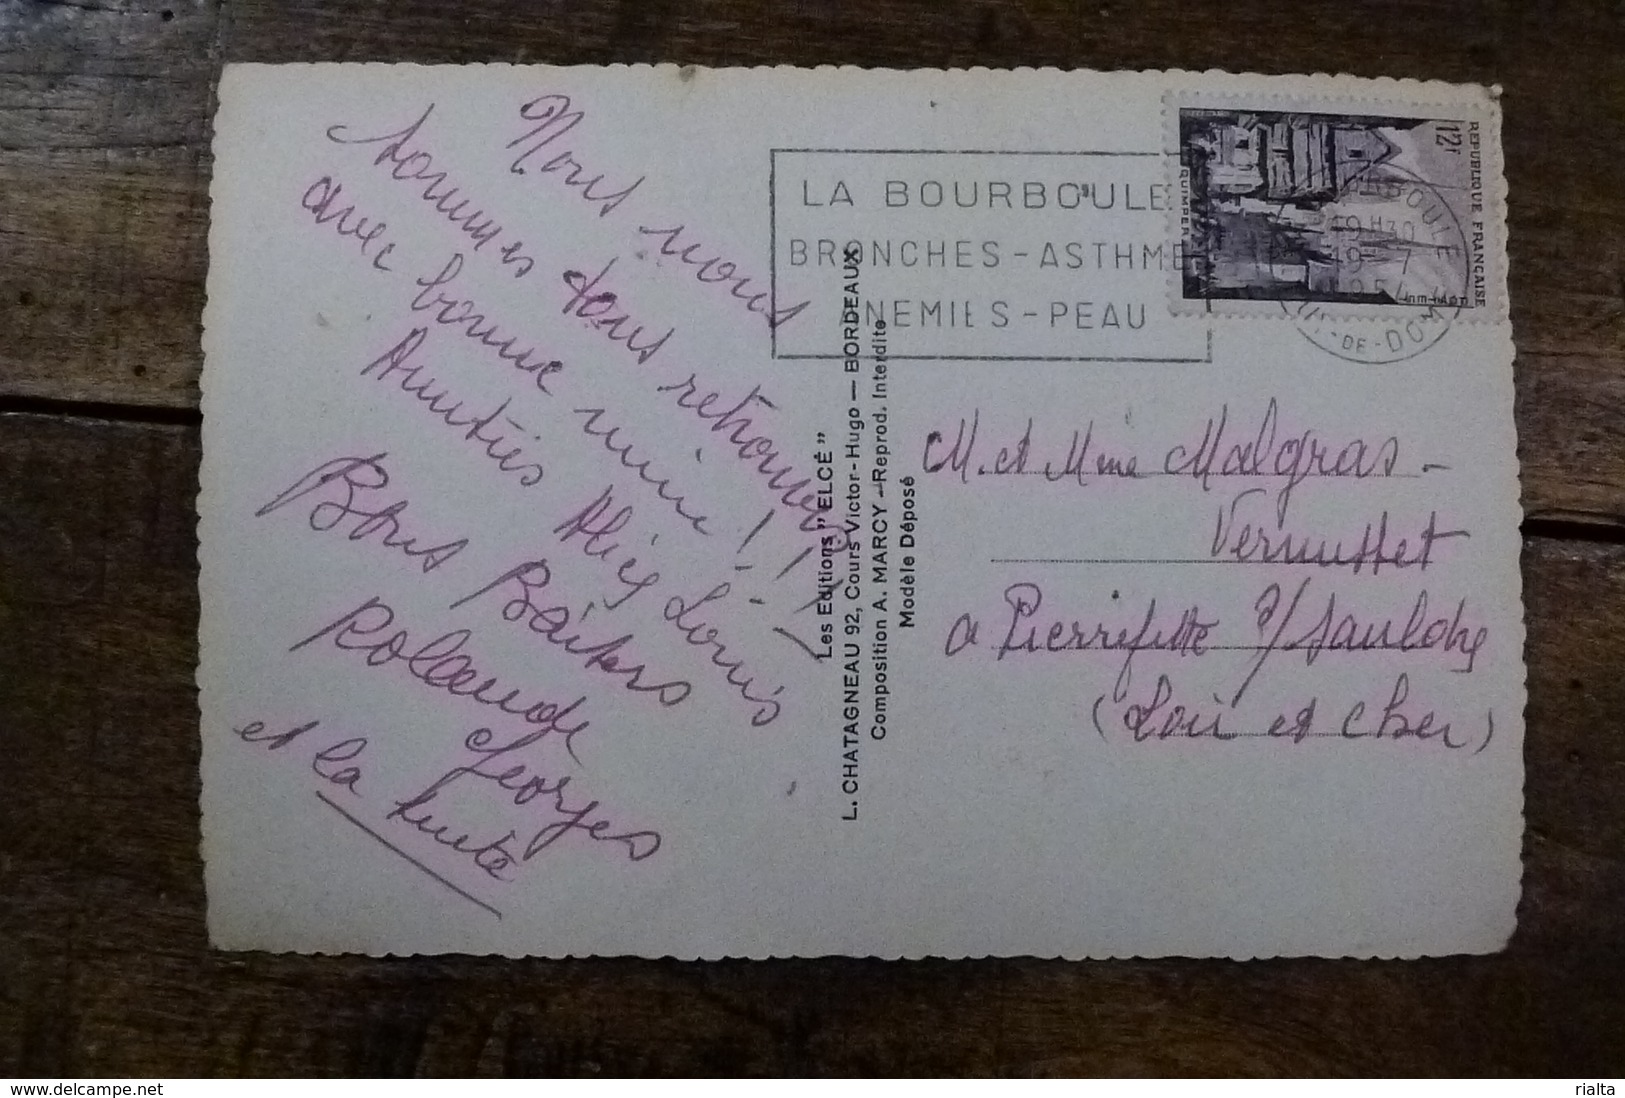 Nous nous
sommes tous retrouvés
avec bonne mine !!!
Amitiés Louis
Bons Baisers
Rolande
Georges
et la suite
Les Editions "ELCÉ"
L. CHATAGNEAU 92, Cours Victor-Hugo — BORDEAUX
Composition A. MARCY — Reprod. Interdite
Modèle Déposé
LA BOURBOULE
BRONCHES - ASTHME
ANEMIES - PEAU
12F
REPUBLIQUE FRANÇAISE
QUIMPER
BOURBOULE
19 H30
19 - 7
1954
PUY-DE-DOME
M. et Mme Malgras -
Vernusset
a Pierrefitte s/ Sauldre
(Loir et Cher)
www.delcampe.net
rialta